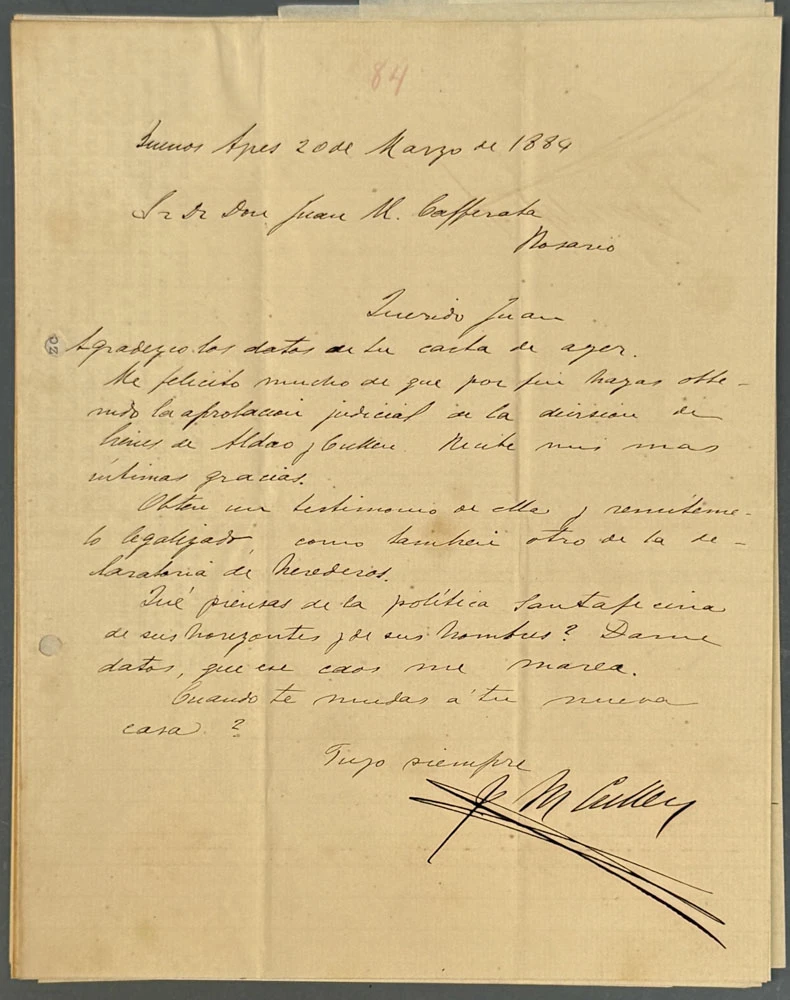 84
Buenos Ayres 20 de Marzo de 1884
Sr Dr Don Juan M. Cafferata
Rosario
Querido Juan
20
Agradezco los datos de tu carta de ayer.
Me felicito mucho de que por fin hayas obte-
nido la aprobacion judicial de la division de
bienes de Aldao y Cullen. Recibe mis mas
intimas gracias.
Obten un testimonio de ella y remiteme-
lo legalizado, como tambien otro de la de-
claratoria de herederos.
Qué piensas de la política Santafecina
de sus horizontes y de sus hombres? Dame
datos, que ese caos me marea.
Cuando te mudas á tu nueva
casa?
Tuyo siempre
J M Cullen